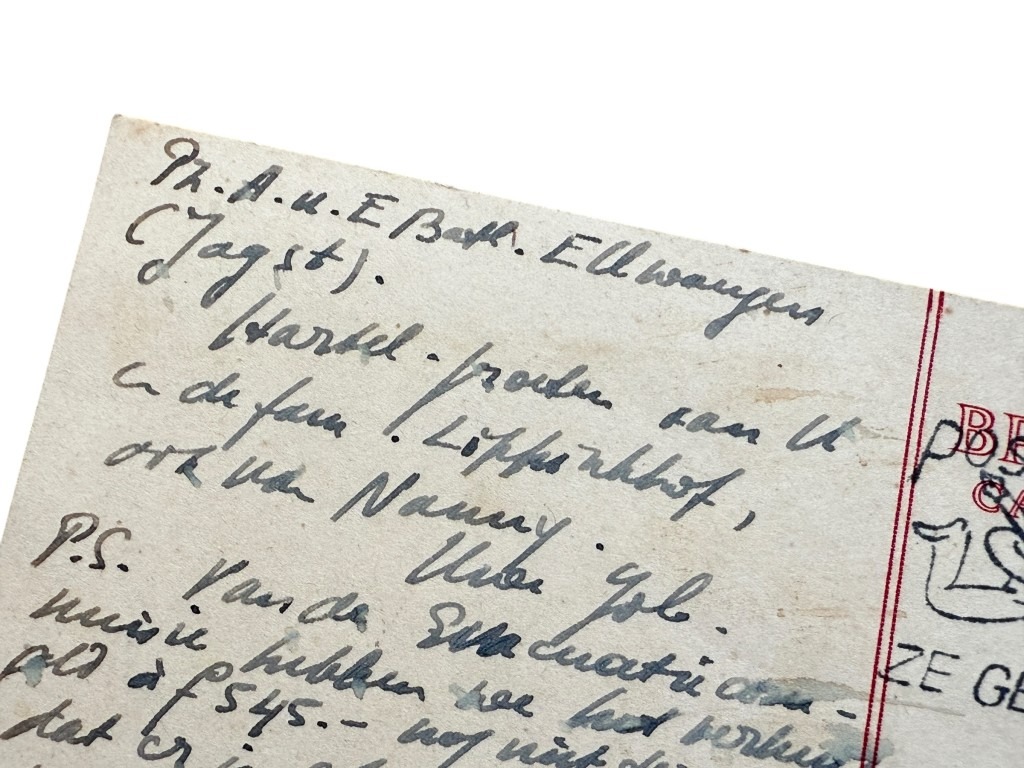 Ph. A. u. E Barth. Ellwangen
(Jagst).
Hartel. groeten aan U
en de fam. Lippinkhof,
ook van Nanny.
Uw Joh.
P.S. Van de Evacuatie com-
missie hebben we het verhuis
geld à f 545.- nog niet
dat er
BR
POS
CA
ZE GE